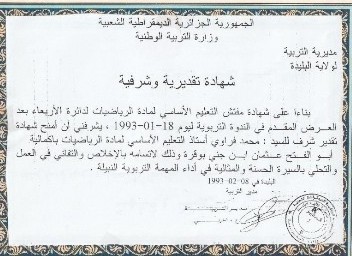 الجمهورية الجزائرية الديمقراطية الشعبية
وزارة التربية الوطنية
مديرية التربية
لولاية البليدة
شهادة تقديرية وشرفية
بناءا على شهادة مفتش التعليم الأساسي لمادة الرياضيات لدائرة الأربعاء بعد
العرض المقدم في الندوة التربوية ليوم 18-01-1993 ، يشرفني أن أمنح شهادة
تقدير شرف للسيد : محمد فراوي أستاذ التعليم الأساسي لمادة الرياضيات باكمالية
أبو الفتح عثمان ابن جني بوقرة وذلك لاتسامه بالإخلاص والتفاني في العمل
والتحلي بالسيرة الحسنة والمثالية في أداء المهمة التربوية النبيلة .
البليدة في 08-02-1993
مدير التربية